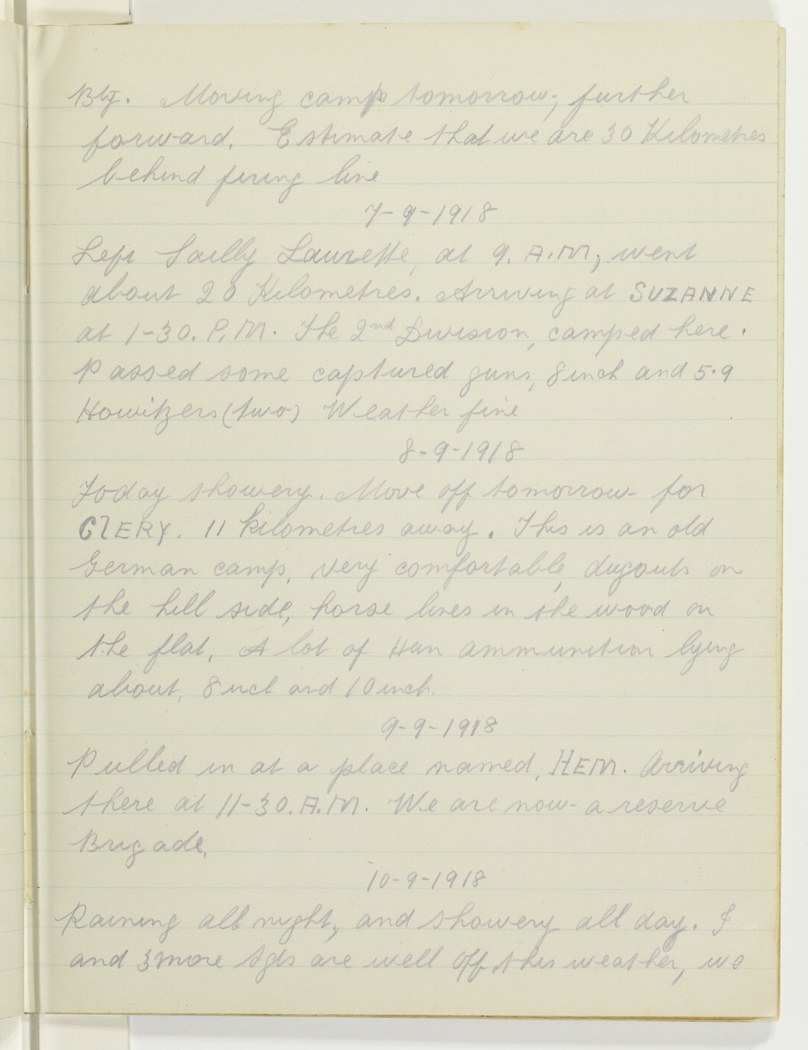 Bty. Moving camp tomorrow, further
forward. Estimate that we are 30 Kilometres
behind firing line
7-9-1918
Left Sailly Laurette, at 9. A.M, went
about 20 Kilometres. Arriving at SUZANNE
at 1-30. P.M. The 2nd Division, camped here.
Passed some captured guns, 8 inch and 5.9
Howitzers (two) Weather fine
8-9-1918
Today showery. Move off tomorrow for
CLERY. 11 kilometres away. This is an old
German camp, very comfortable, dugouts on
the hill side, horse lines in the wood on
the flat. A lot of Hun ammunition lying
about, 8 inch and 10 inch.
9-9-1918
Pulled in at a place named, HEM. Arriving
there at 11-30. A.M. We are now a reserve
Brigade.
10-9-1918
Raining all night, and showery all day. I
and 3 more Sgts are well off this weather, we